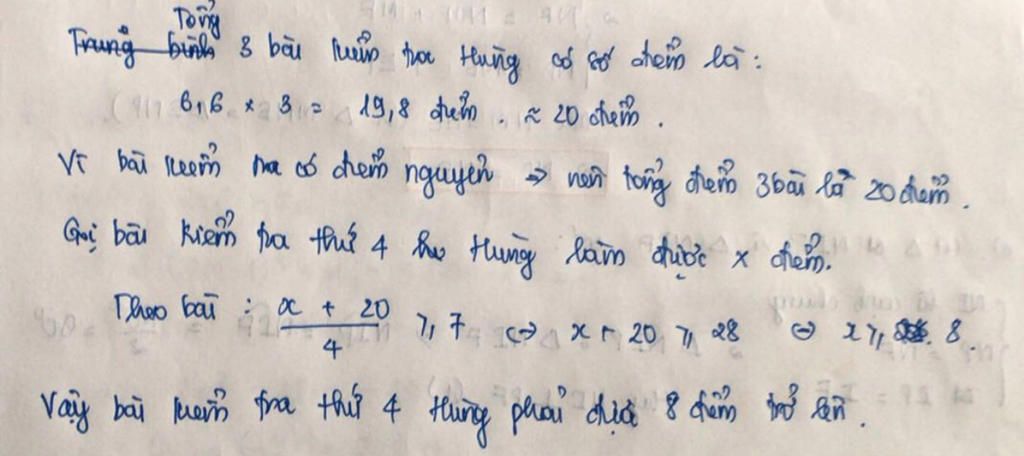 Tổng
Trung bình 3 bài kiểm tra Hùng có số điểm là:
6,6 × 3 = 19,8 điểm. ≈ 20 điểm.
Vì bài kiểm tra có điểm nguyên => nên tổng điểm 3 bài là 20 điểm.
Gọi bài kiểm tra thứ 4 Hùng làm được x điểm.
Theo bài : x + 20 / 4 ⩾ 7 <=> x + 20 ⩾ 28 <=> x ⩾ 8.
Vậy bài kiểm tra thứ 4 Hùng phải được 8 điểm trở lên.